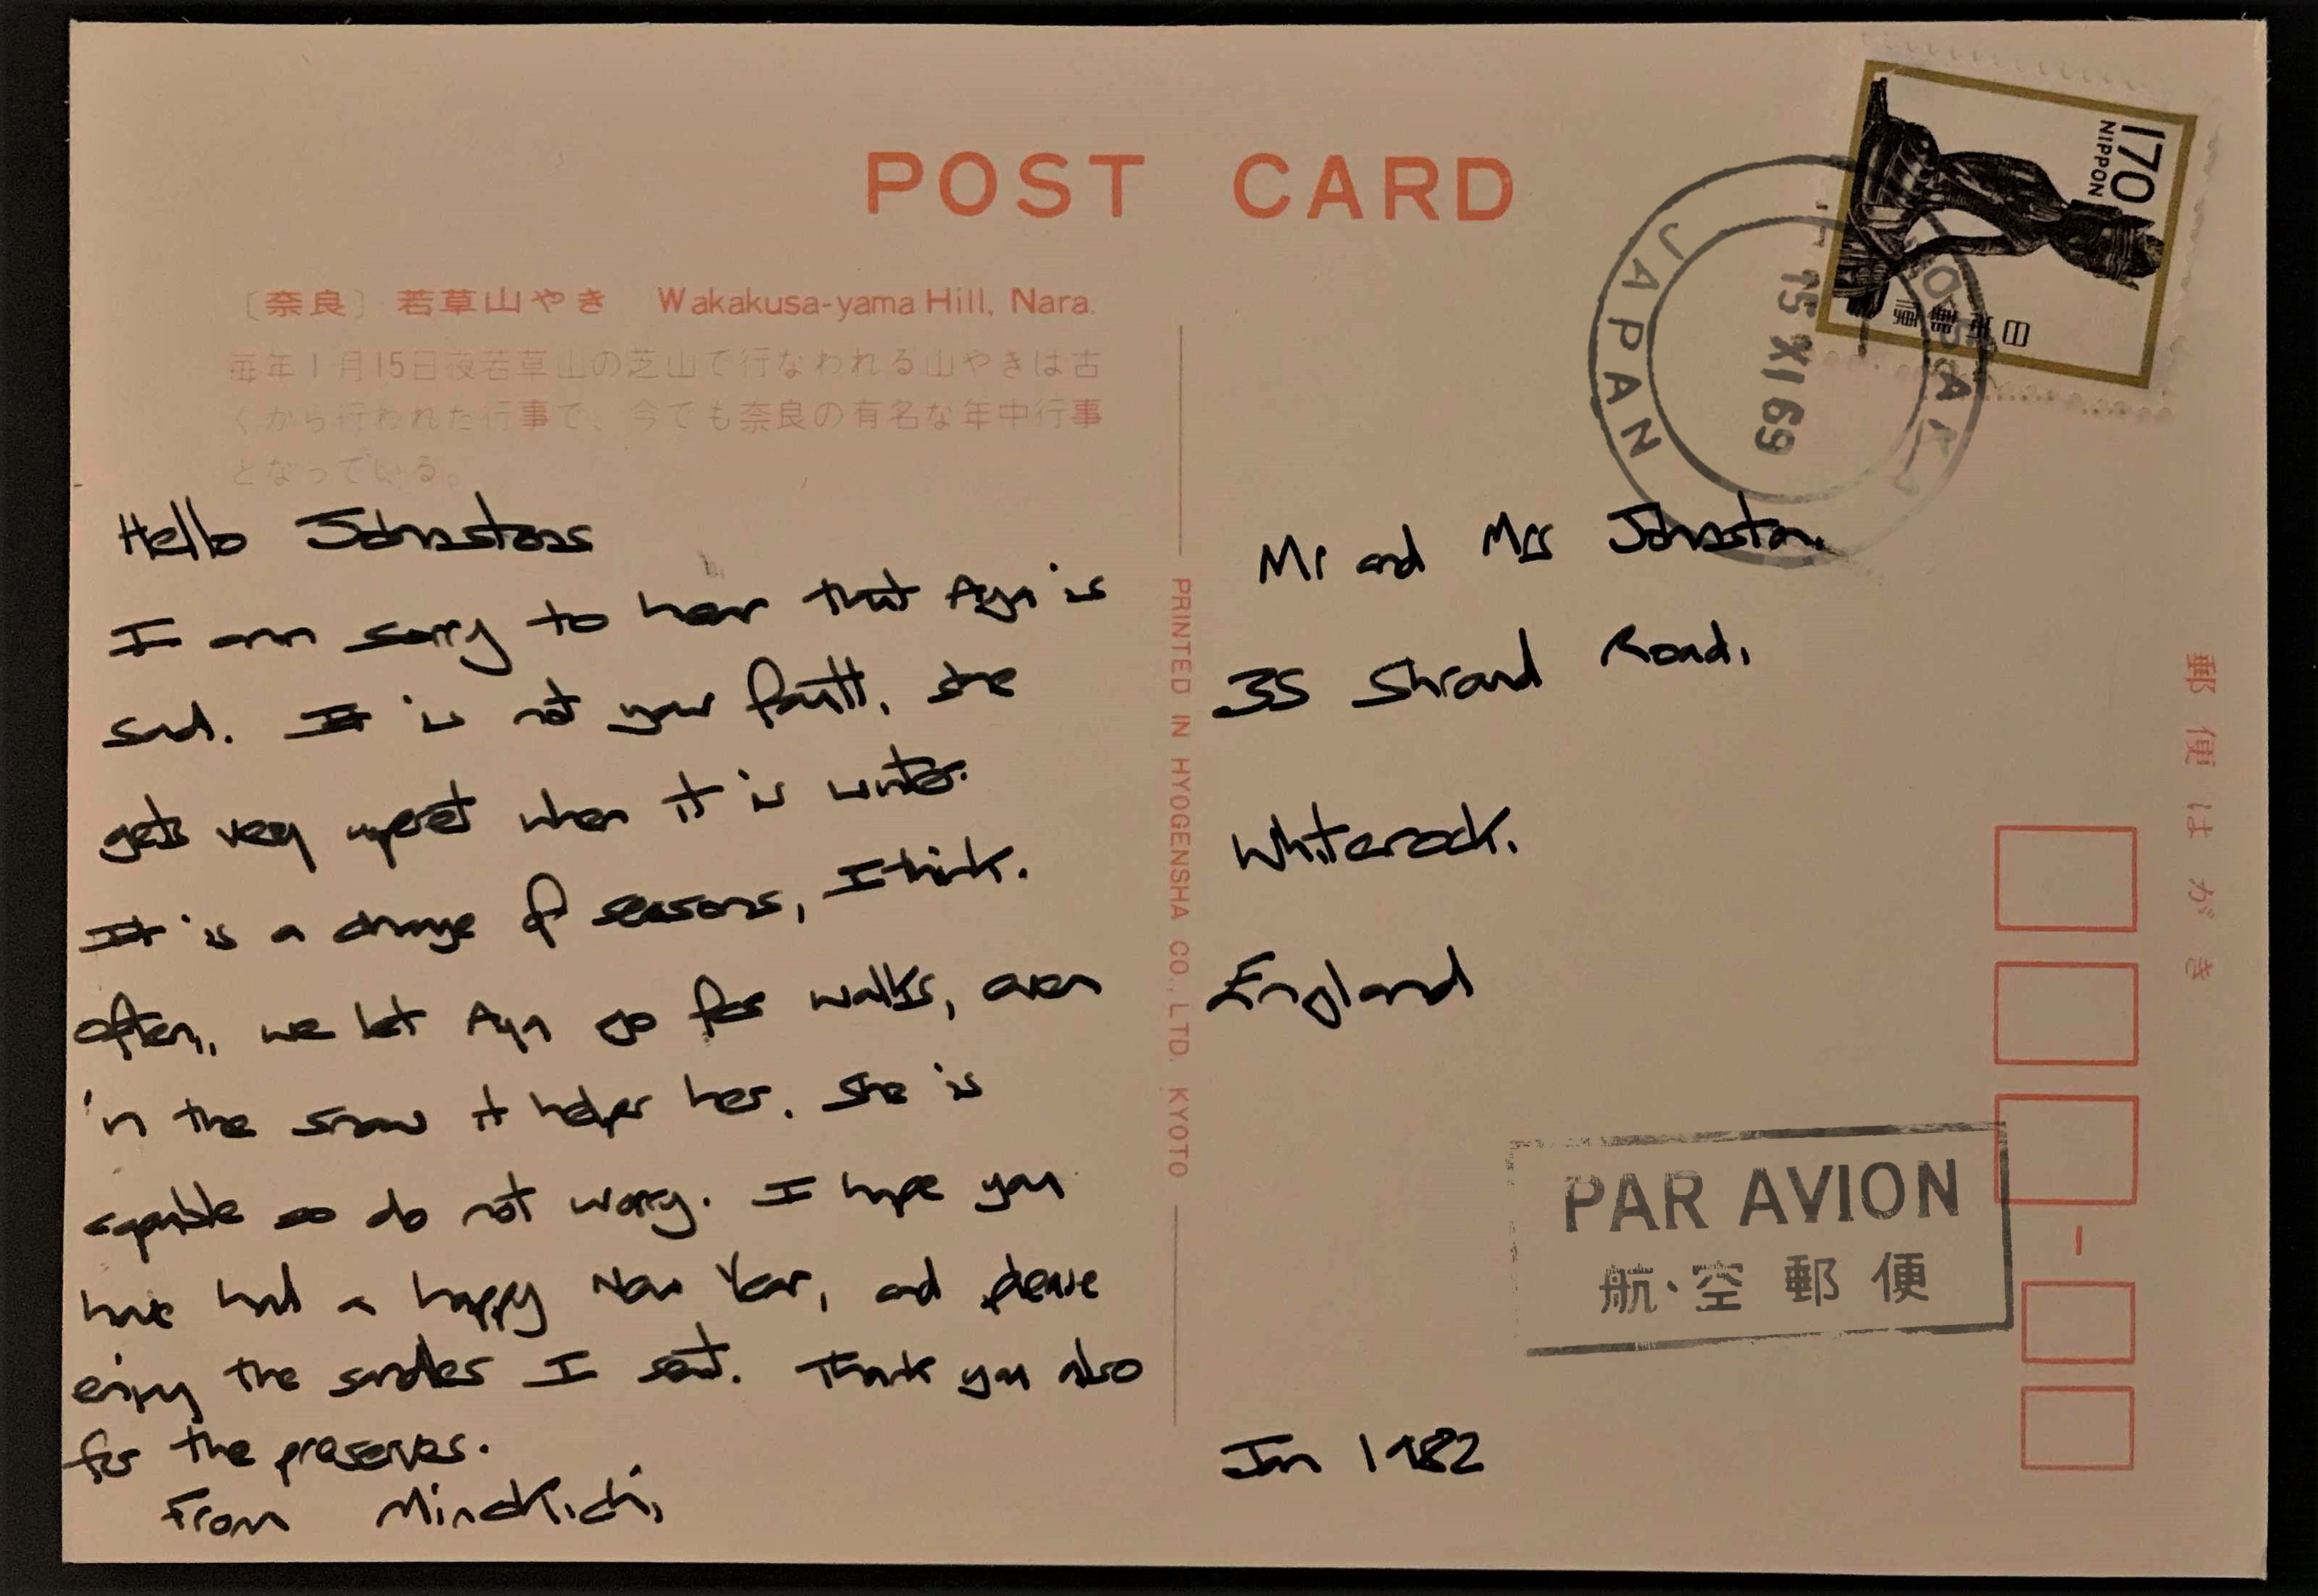 POST CARD
〔奈良〕 若草山やき Wakakusa-yama Hill, Nara.
毎年1月15日夜若草山の芝山で行なわれる山やきは古
くから行われた行事で、今でも奈良の有名な年中行事
となっている。
Hello Johnstons
I am sorry to hear that Aya is
sad. It is not your fault, she
gets very upset when it is winter.
It is a change of seasons, I think.
Often, we let Aya go for walks, even
in the snow it helps her. She is
capable so do not worry. I hope you
have had a happy New Year, and please
enjoy the sandles I sent. Thank you also
for the preserves.
From
PRINTED IN HYOGENSHA CO., LTD. KYOTO
170
NIPPON
日本郵便
JAPAN
15 XI 69
Mr and Mrs Johnston.
35 Road,
Whiterock.
England
郵便はがき
PAR AVION
航空郵便
Jan 1982